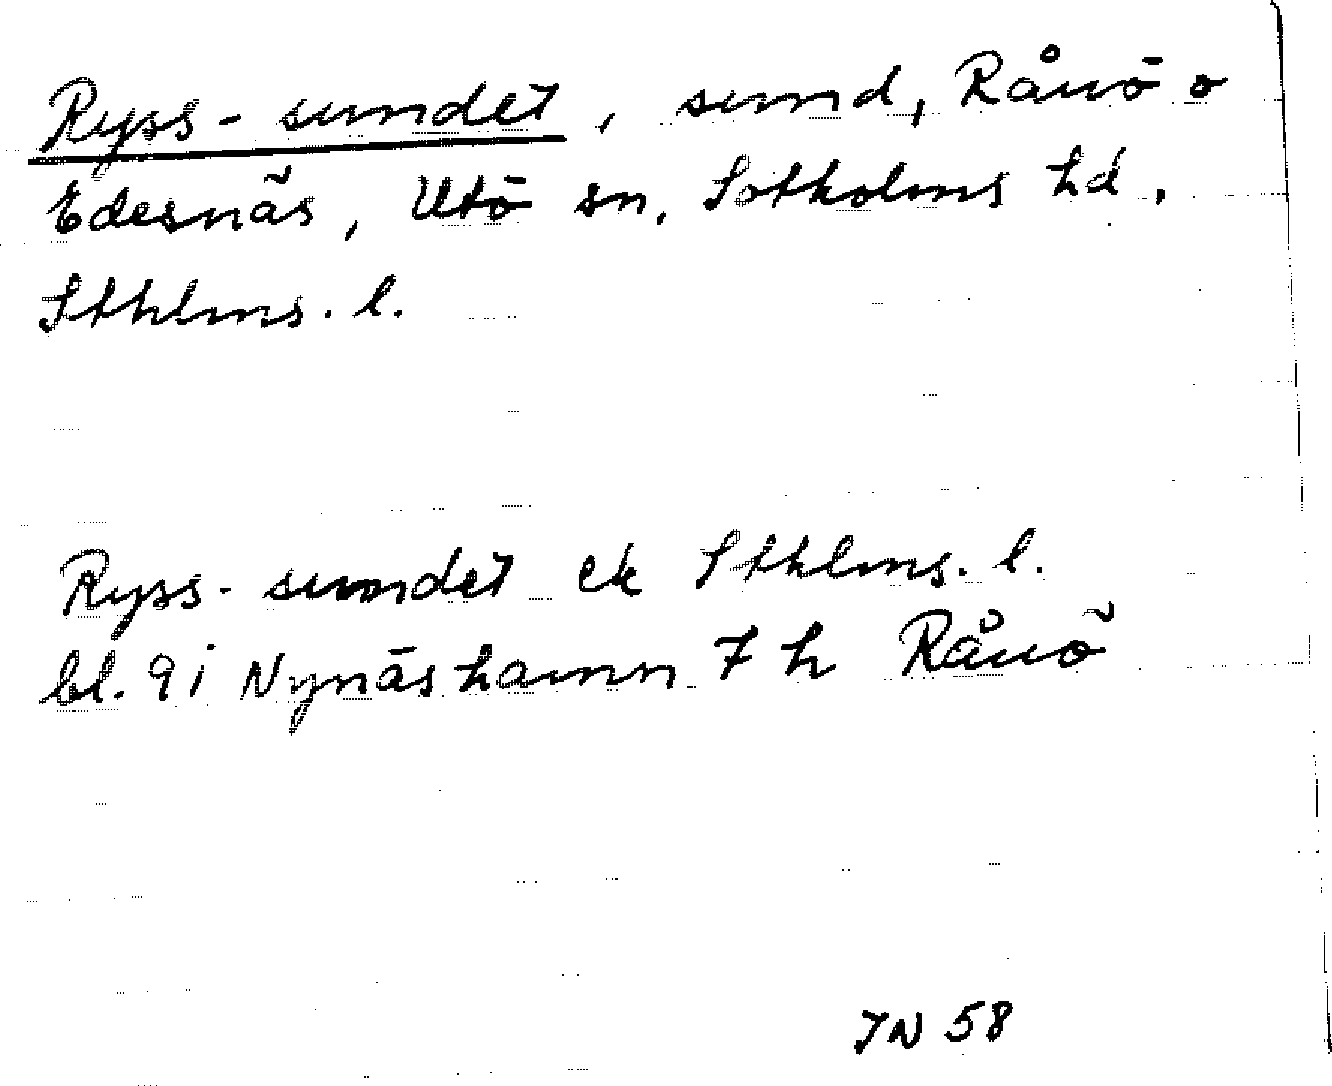 Ryss-sundet, sund, Rånö o
Edesnäs, Utö sn, Sotholms hd,
Sthlms. l.
Ryss-sundet ek Sthlms. l.
bl. 91 Nynäshamn 7 h Rånö
JN 58